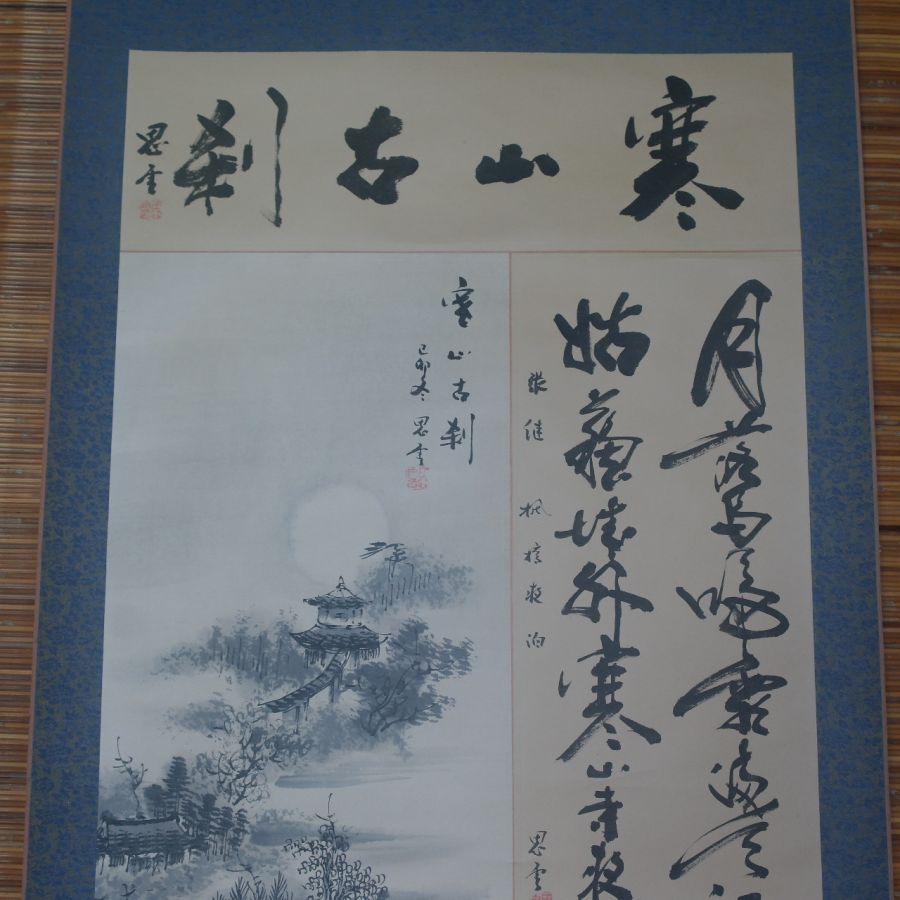 寒山古刹
思雲
月落烏啼霜満天江
姑蘇城外寒山寺夜
張継 楓橋夜泊
思雲
寒山古刹
己卯冬 思雲